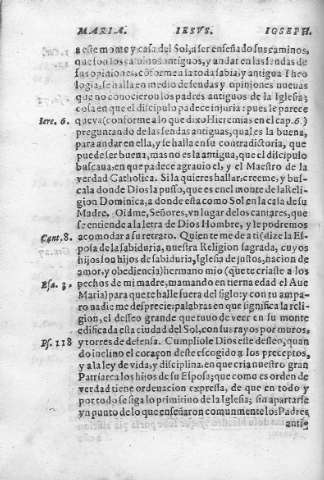 MARIA. IESVS. IOSEPH.
a este monte y casa del Sol, a ser enseñado sus caminos,
que son los caminos antiguos, y andar en las sendas de
sus opiniones, cōforme a la toda sabia, y antigua Theo
logia, se halla en medio de sendas y opiniones nuevas
que no conocieron los padres antiguos de la Iglesia;
cosa en que el discipulo padece injuria: pues le parece
Iere. 6. que va (conforme a lo que dixo Hieremias en el cap. 6)
preguntando de las sendas antiguas, qual es la buena,
para andar en ella, y se halla en su contradictoria, que
puede ser buena, mas no es la antigua, que el discipulo
buscaua, en que padece agrauio el, y el Maestro de la
verdad Catholica. Si la quieres hallar, creeme, y bus-
cala donde Dios la puso, que es en el monte de la Reli
gion Dominica, a donde esta como Sol en la casa de su
Madre. Oidme, Señores, vn lugar de los cantares, que
se entiende a la letra de Dios Hombre, y le podremos
Cant. 8. acomodar a su retrato. Quien te me de a ti (dize la Es-
posa de la sabiduria, nuestra Religion sagrada, cuyos
hijos son hijos de sabiduria, Iglesia de justos, nacion de
amor, y obediencia) hermano mio (que te criaste a los
Esa. 3. pechos de mi madre, mamando en tierna edad el Aue
Maria) para que te halle fuera del siglo: y con tu ampa-
ro nadie me desprecie: palabras en que significa la reli-
gion, el desseo grande que tuuo de veer en su monte
edificada esta ciudad del Sol, con sus rayos por muros,
Ps. 118 y torres de defensa. Cumpliole Dios este desseo, quan
do inclino el coraçon deste escogido a los preceptos,
y a la ley de vida, y disciplina, en que cria nuestro gran
Patriarca los hijos de su Esposa; que como es orden de
verdad tiene ordenacion expressa, de que en todo y
por todo se siga lo primitiuo de la Iglesia; sin apartarse
vn punto de lo que enseñaron comunmente los Padres
antig